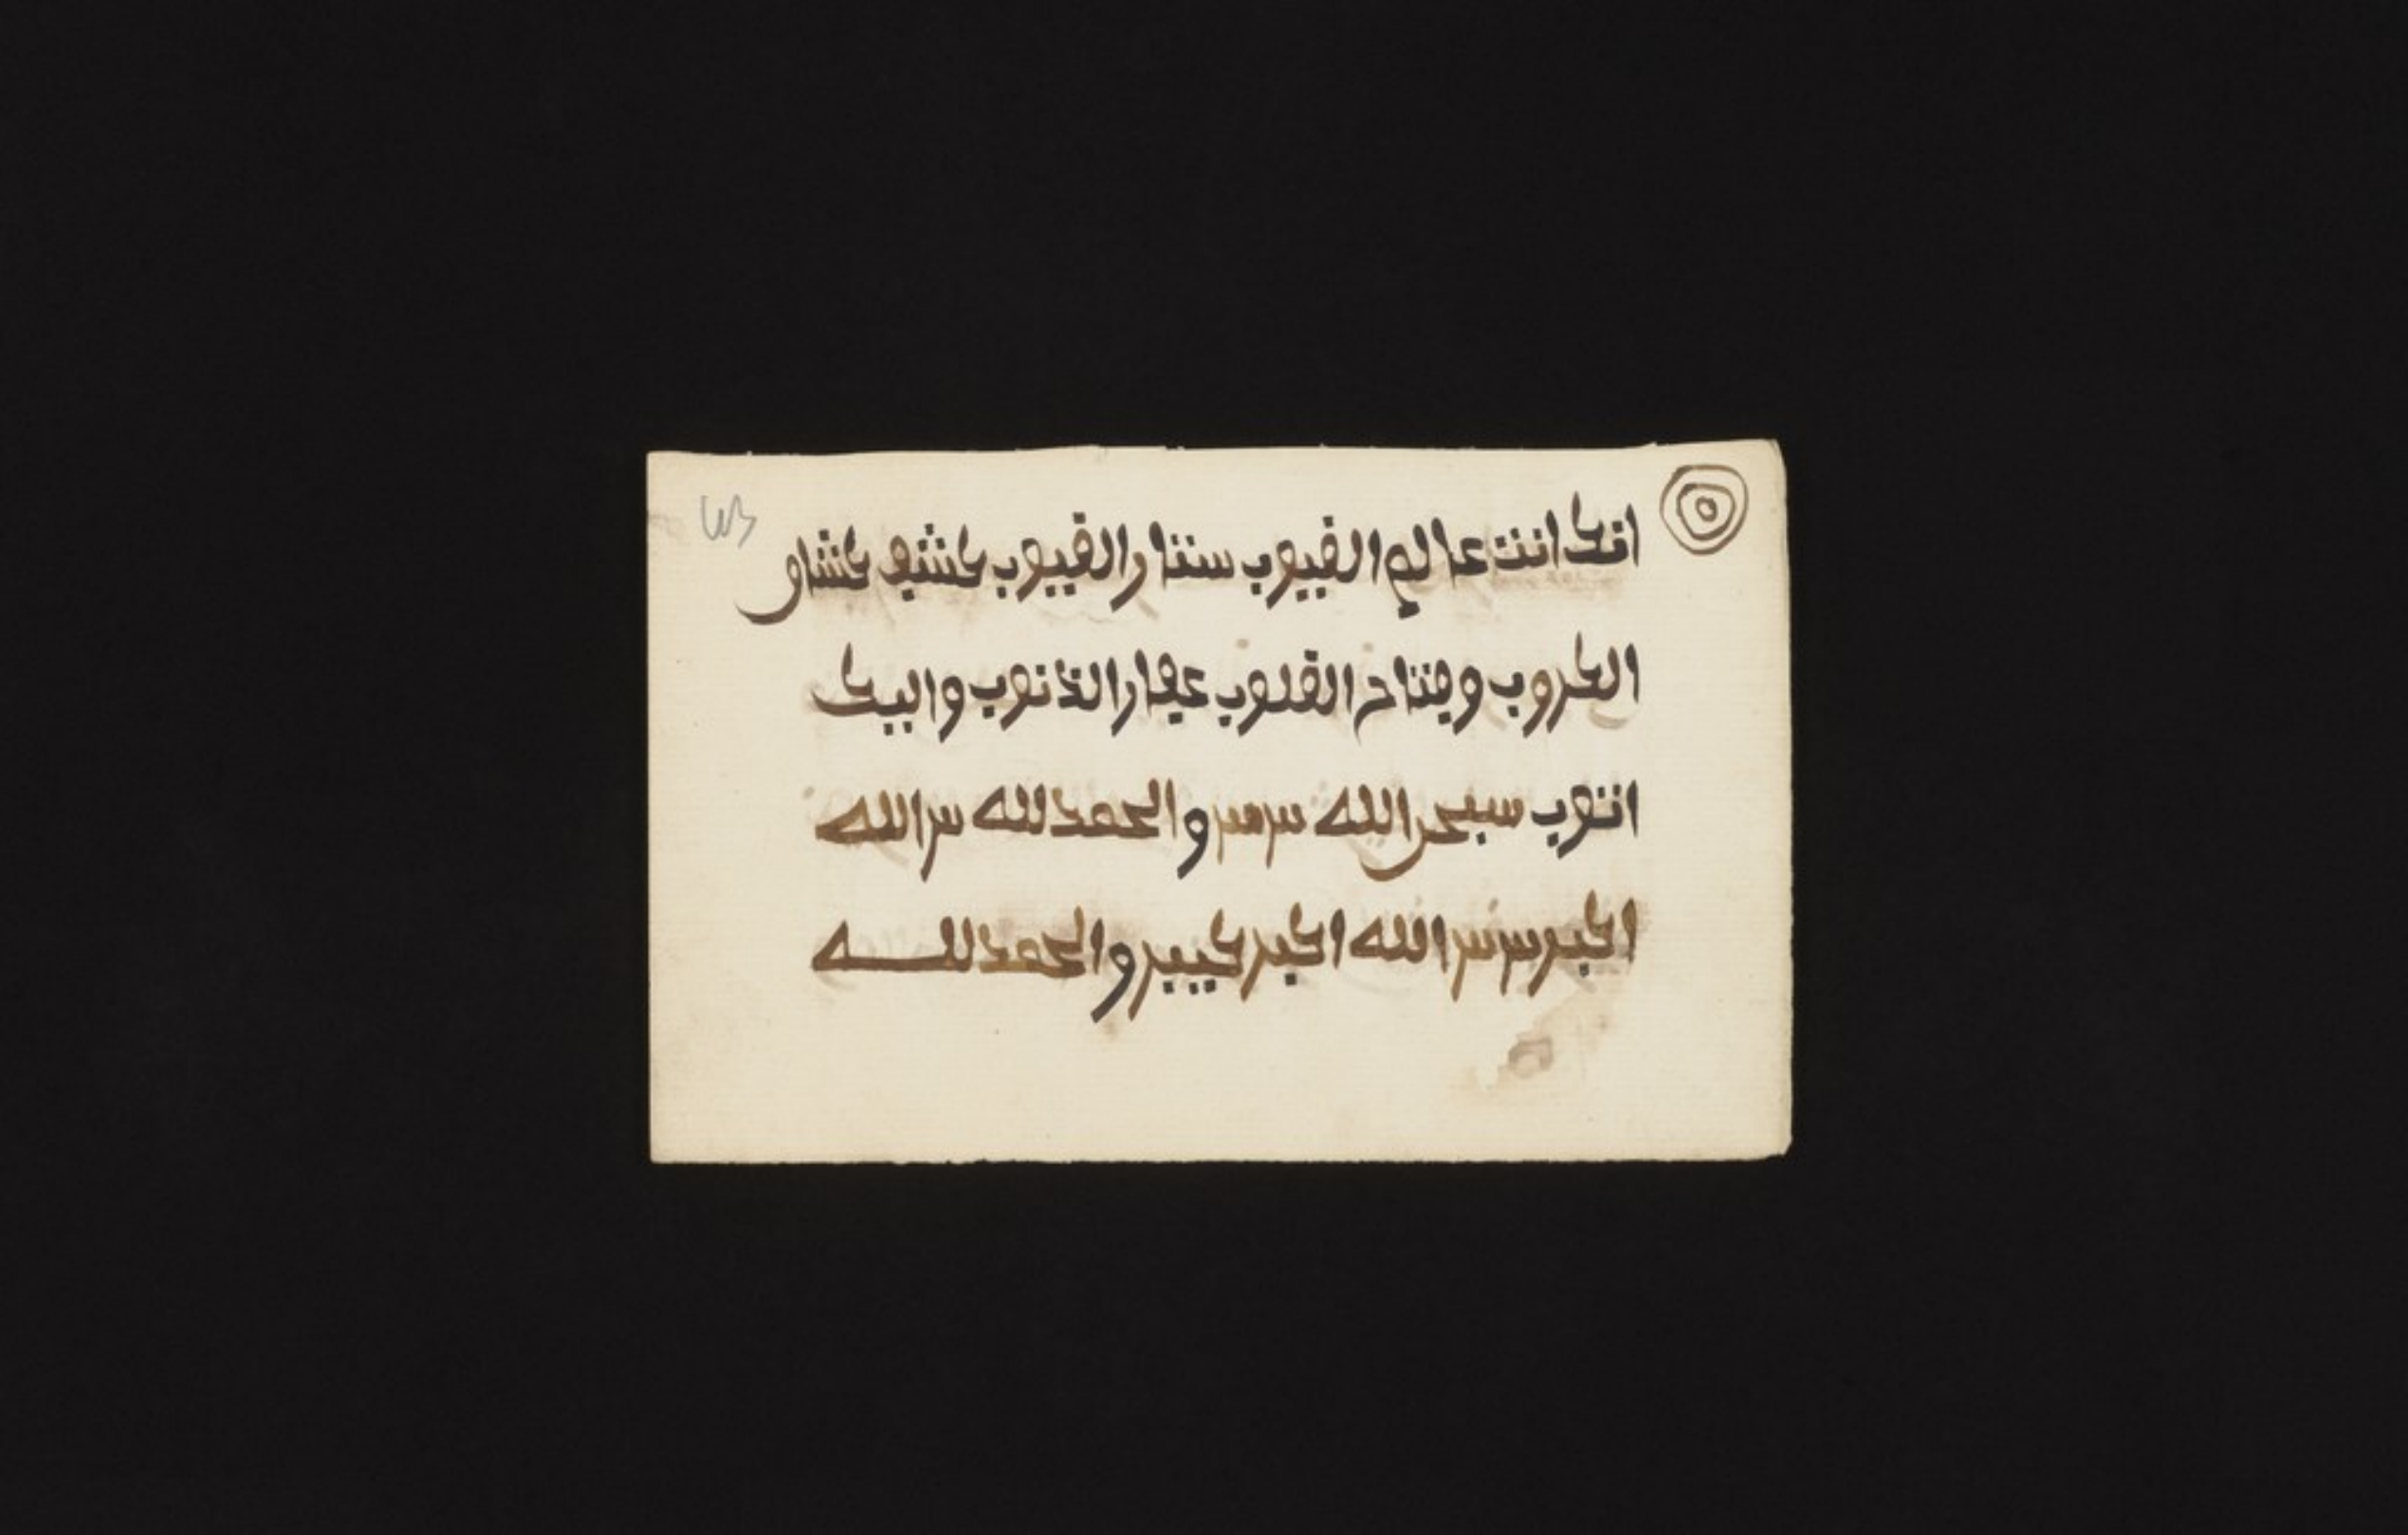 انك انت عالم الغيوب ستار الغيوب كشف كشاو
الكروب ومتاح القلوب عفار الذنوب واليك
اتوب سبحن الله س س س والحمد لله س الله
اكبر س س الله اكبر كبير والحمد لله